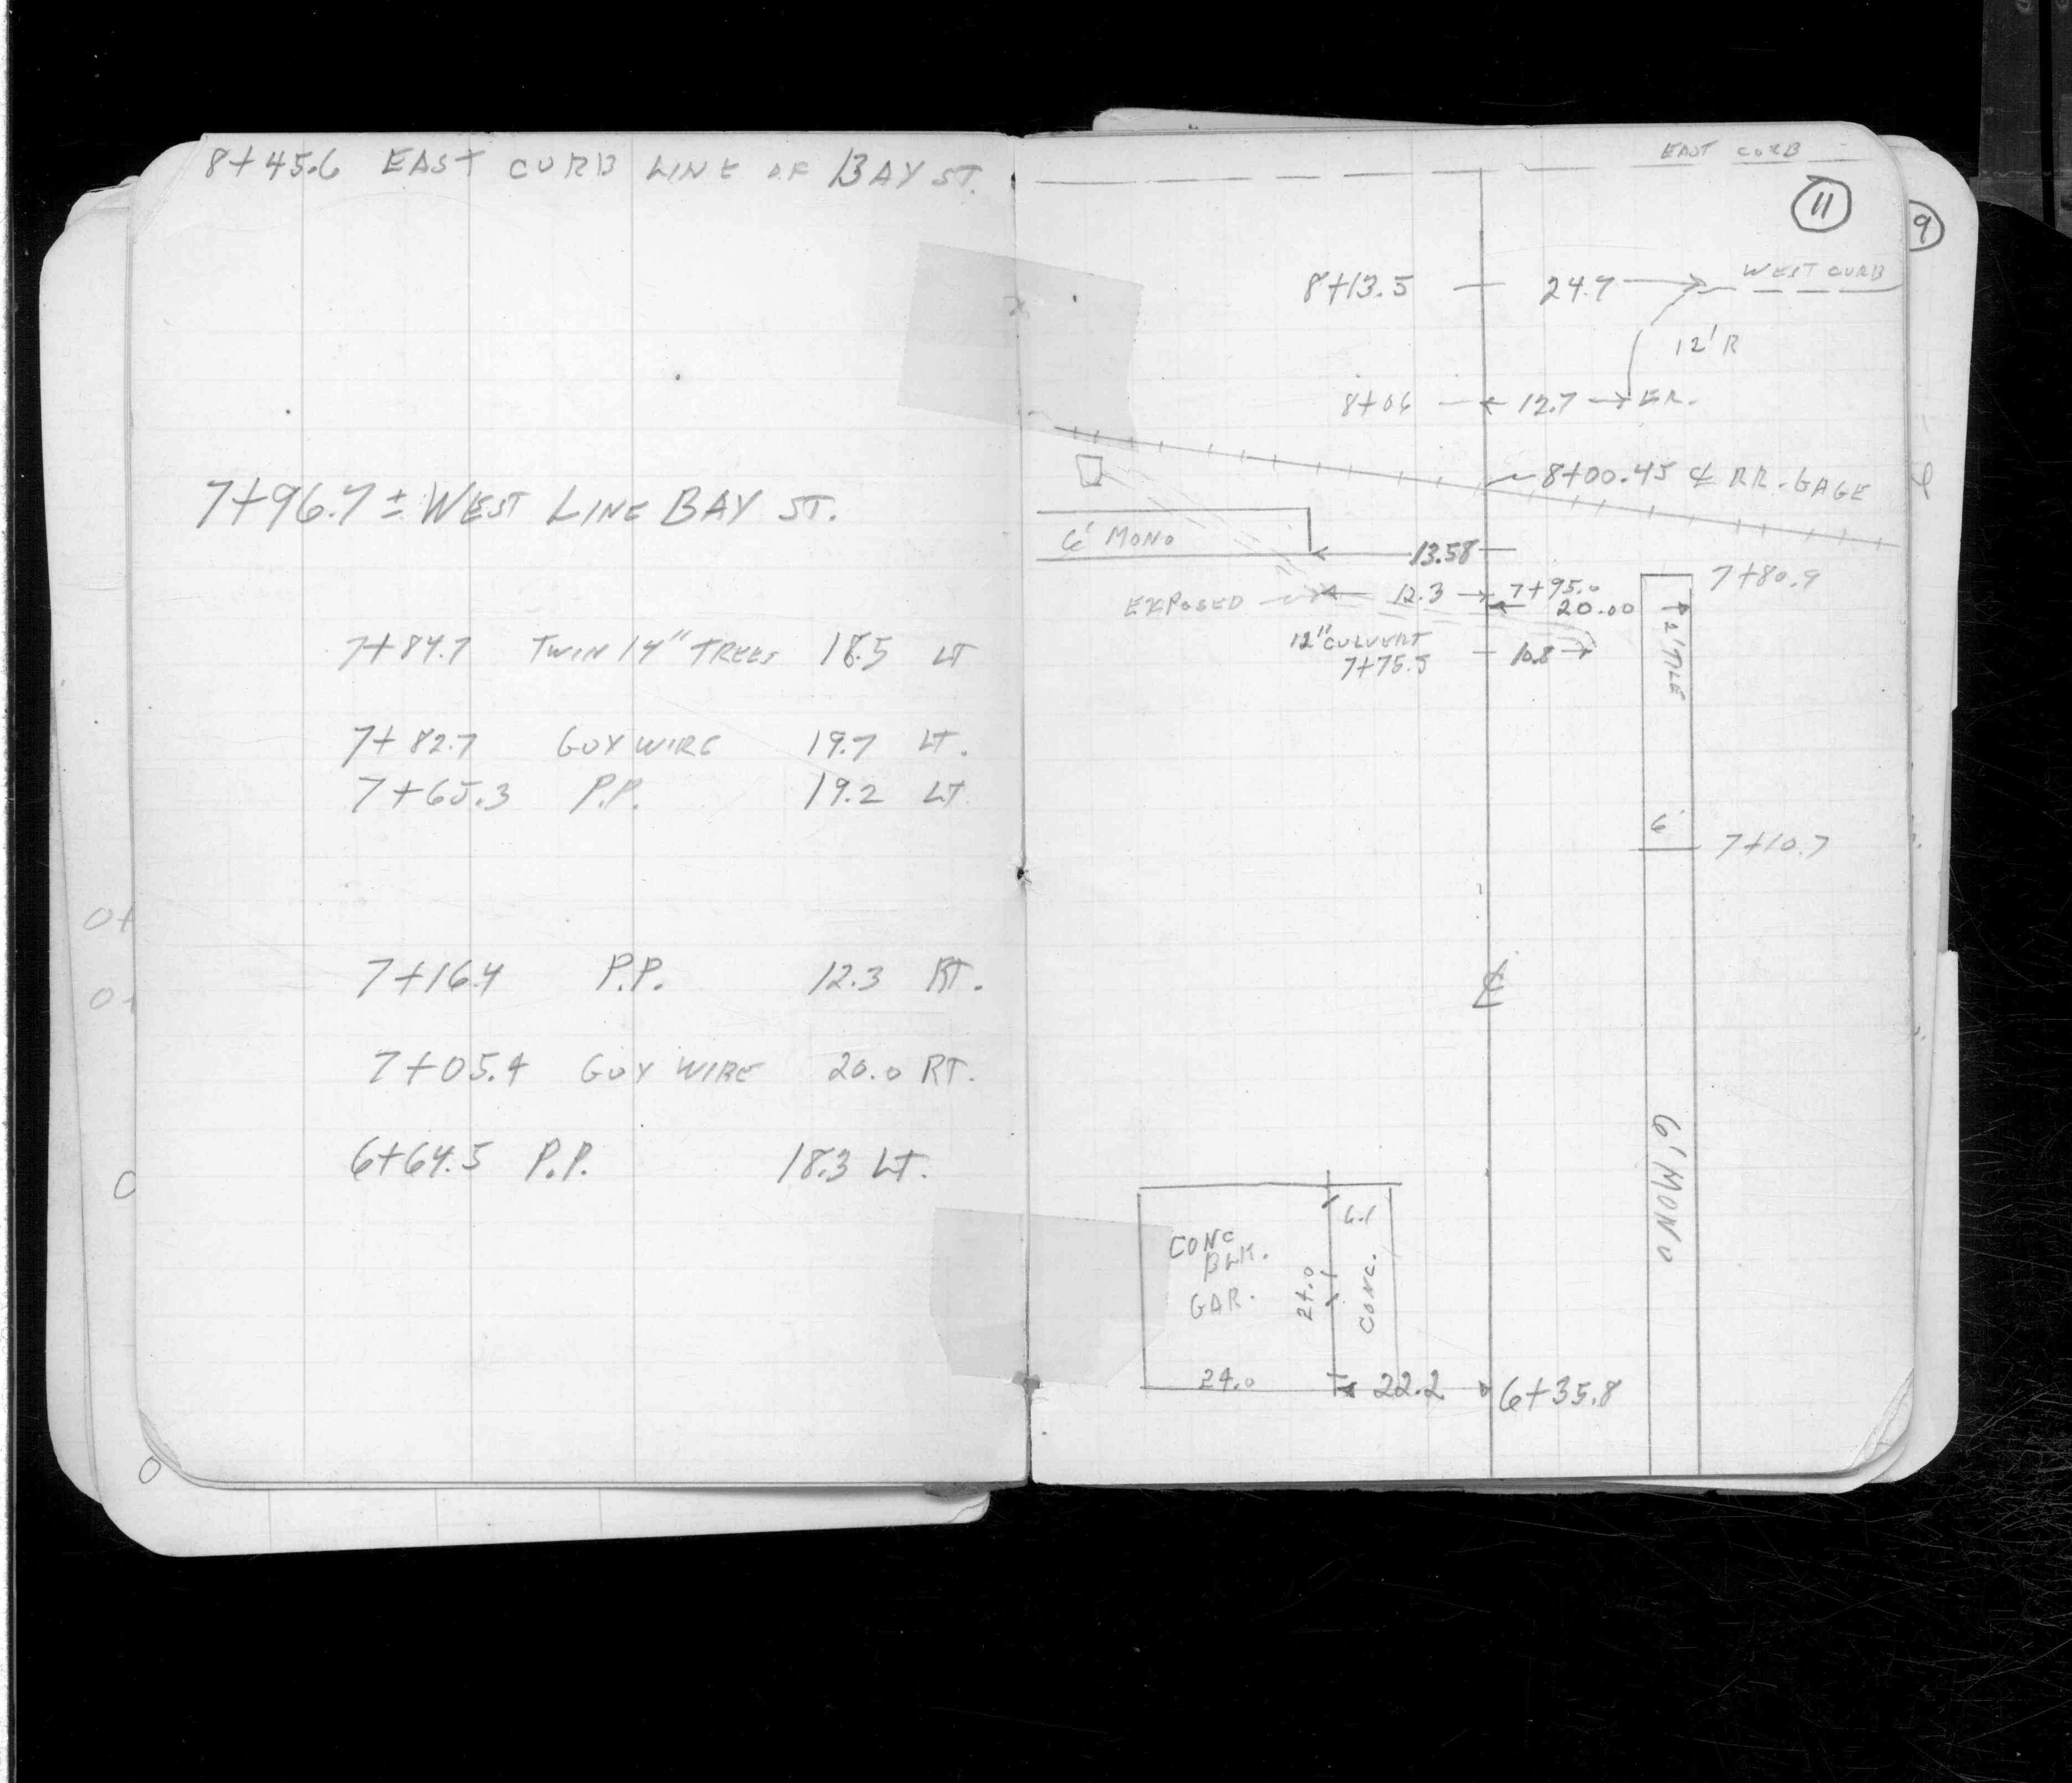 8+45.6 EAST CURB LINE OF BAY ST.
7+96.7 ± WEST LINE BAY ST.
7+84.7 TWIN 14" TREES 18.5 LT
7+82.7 GUY WIRE 19.7 LT.
7+65.3 P.P. 19.2 LT
7+16.4 P.P. 12.3 RT.
7+05.4 GUY WIRE 20.0 RT.
6+64.5 P.P. 18.3 LT.
EAST CURB
11
9
WEST CURB
8+13.5 24.7
12' R
8+06 12.7 E.R.
8+00.45 ℄ RR. GAGE
6' MONO
13.58
7+80.9
EXPOSED 12.3 7+95.0
20.00
12" CULVERT
7+75.5 10.8
2' TILE
6'
7+10.7
℄
6' MONO
6.1
CONC
BLK.
GAR.
24.0
CONC.
24.0
22.2 6+35.8
0+
0+
0
0